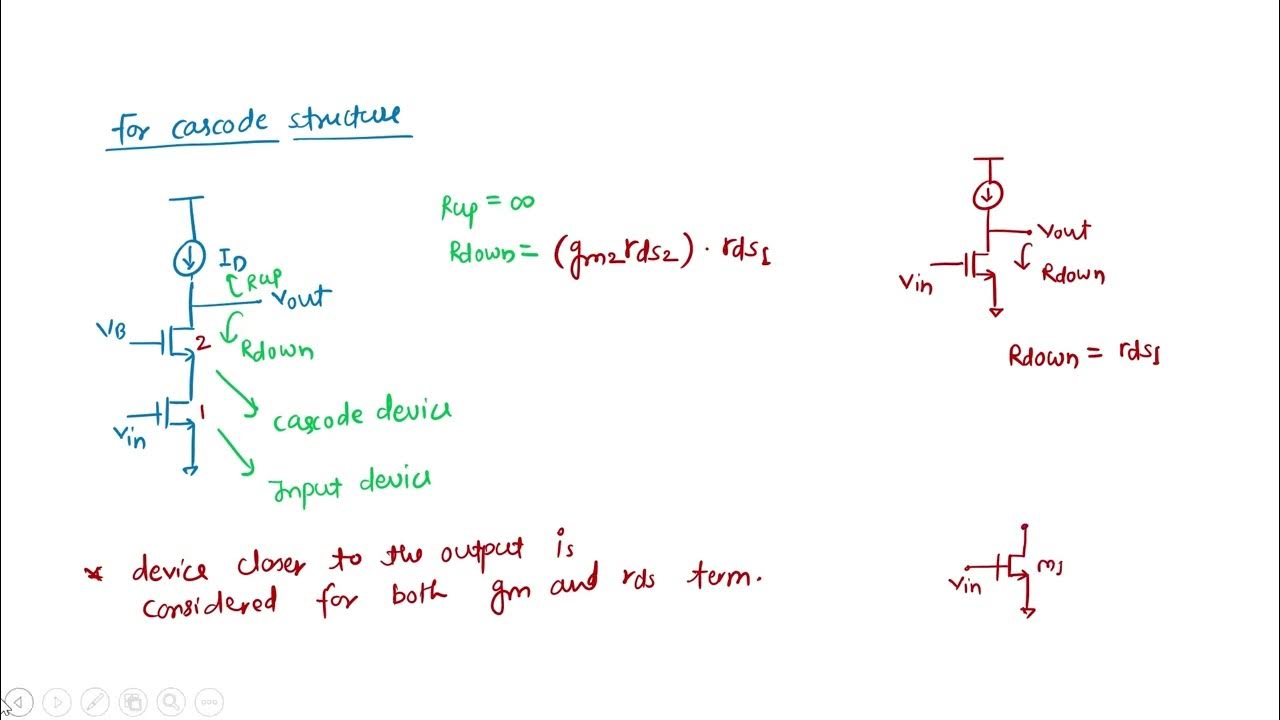 for cascode structure
Rup = ∞
Rdown = (gm2 rds2) · rds1
ID
Rup
Vout
VB
2
Rdown
cascode device
Vin
1
Input device
* device closer to the output is
considered for both gm and rds term.
Vout
Vin
Rdown
Rdown = rds1
Vin
M1